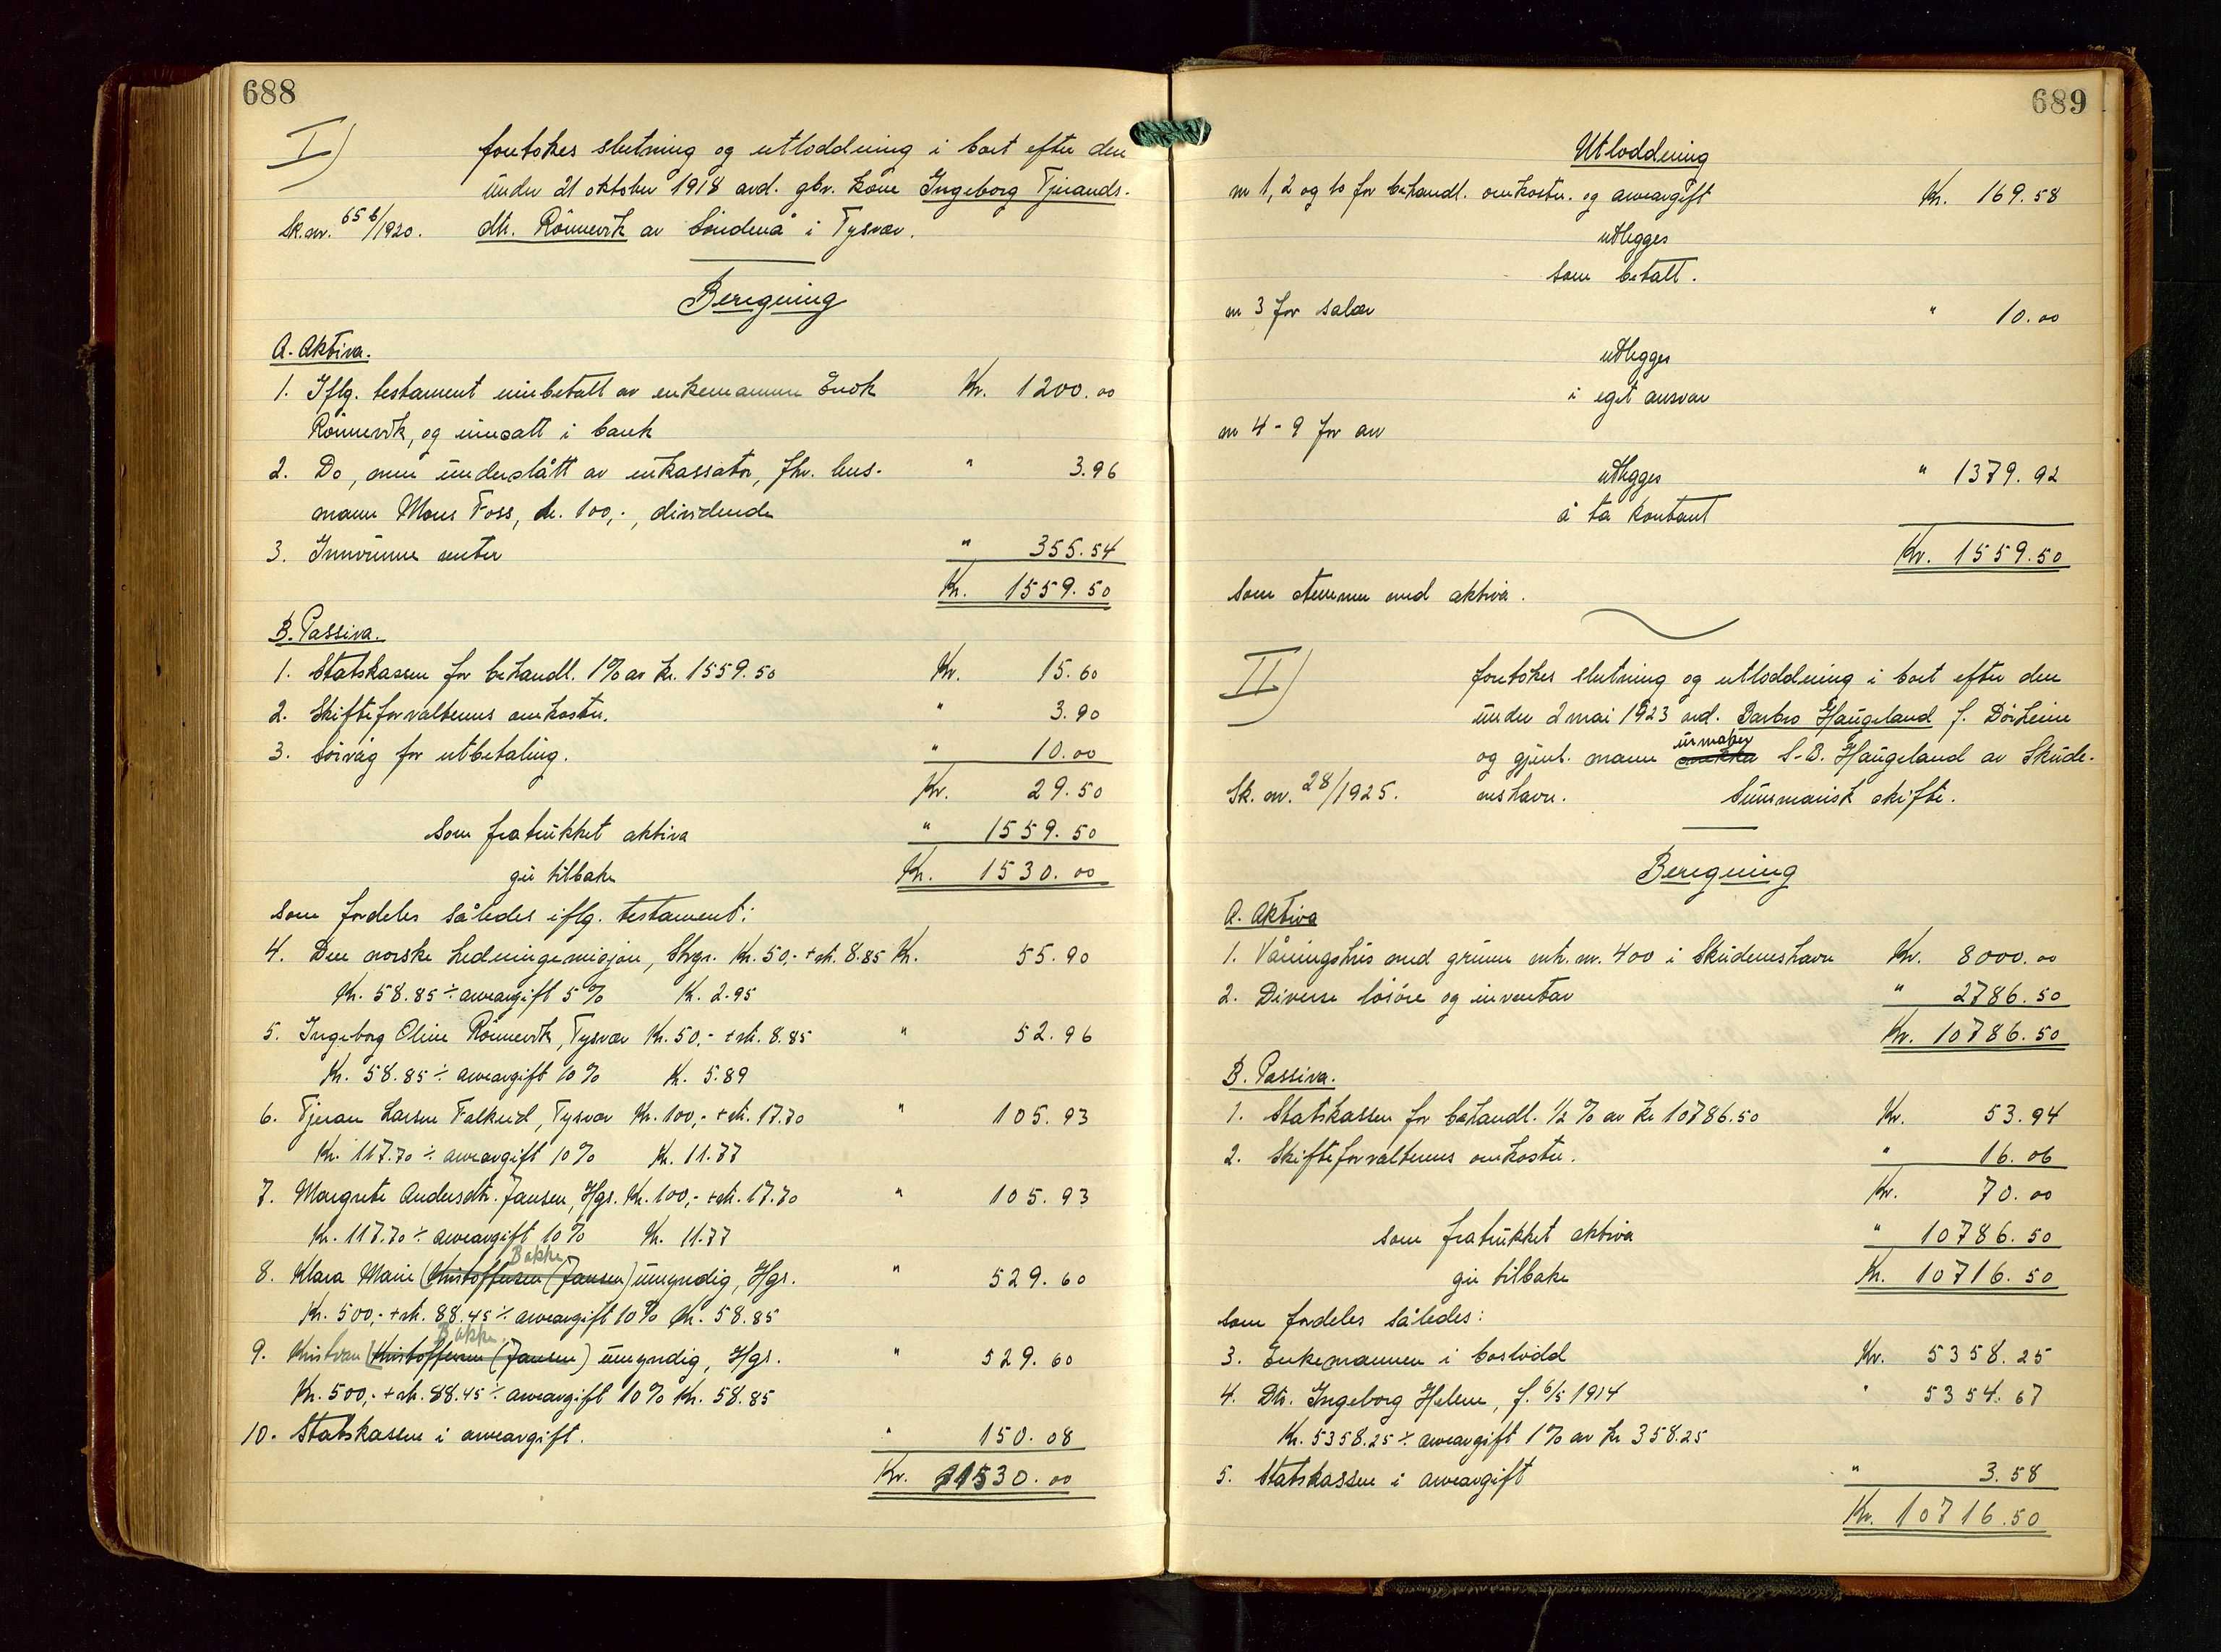 688
I)
foretokes slutning og utloddning i boet efter den
under 21 oktober 1918 avd. gbr. kone Ingeborg Tjerands-
Sk.nr. 656/1920. dtr. Rönnevik av Söndenå i Tysvær.
Beregning
A. Aktiva.
1. Iflg. testament innbetalt av enkemannen Enok Kr. 1200.00
Rönnevik, og innsatt i bank
2. Do, men underslått av inkassator, fhv. lens- " 3.96
mann Mons Foss, kr. 100,-, dividende
3. Innvunne renter " 355.54
Kr. 1559.50
B. Passiva.
1. Statskassen for behandl. 1% av kr. 1559.50 Kr. 15.60
2. Skifteforvalterens omkostn. " 3.90
3. Sörvåg for utbetaling. " 10.00
Kr. 29.50
som fratrukket aktiva " 1559.50
gir tilbake Kr. 1530.00
som fordeles således iflg. testament:
4. Den norske hedningemisjon, Stvgr. Kr. 50,- + rt. 8.85 Kr. 55.90
Kr. 58.85 ÷ arveavgift 5% K. 2.95
5. Ingeborg Oline Rönnevik, Tysvær Kr. 50,- + rt. 8.85 " 52.96
Kr. 58.85 ÷ arveavgift 10% K. 5.89
6. Tjeran Larsen Falkeid, Tysvær Kr. 100,- + rt. 17.70 " 105.93
Kr. 117.70 ÷ arveavgift 10% K. 11.77
7. Margrete Andersdtr. Jansen, Hgs. Kr. 100,- + rt. 17.70 " 105.93
Kr. 117.70 ÷ arveavgift 10% Kr. 11.77
Bakke
8. Klara Marie (Kristoffersen (Jansen) umyndig, Hgs. " 529.60
Kr. 500,- + rt. 88.45 ÷ arveavgift 10% Kr. 58.85
Bakke
9. Kristian (Kristoffersen (Jansen) umyndig, Hgs. " 529.60
Kr. 500,- + rt. 88.45 ÷ arveavgift 10% Kr. 58.85
10. Statskassen i arveavgift. " 150.08
Kr. 1530.00
689
Utloddning
nr 1, 2 og 10 for behandl. omkostn. og arveavgift Kr. 169.58
utlegges
som betalt.
nr 3 for salær " 10.00
utlegges
i eget ansvar
nr 4-9 for arv
utlegges " 1379.92
å ta kontant
Kr. 1559.50
som stemmer med aktiva.
II)
foretokes slutning og utloddning i boet efter den
under 2 mai 1923 avd. Barbro Haugeland f. Dörheim
urmaker
og gjenl. mann S. B. Haugeland av Skude-
Sk. nr. 28/1925. neshavn. Summarisk skifte.
Beregning
A. Aktiva
1. Våningshus med grunn mtr. nr. 400 i Skudeneshavn Kr. 8000.00
2. Diverse lösöre og inventar " 2786.50
Kr. 10786.50
B. Passiva.
1. Statskassen for behandl. 1/2 % av kr 10786.50 Kr. 53.94
2. Skifteforvalterens omkostn. " 16.06
Kr. 70.00
som fratrukket aktiva " 10786.50
gir tilbake Kr. 10716.50
som fordeles således:
3. Enkemannen i boslodd Kr. 5358.25
4. Dtr. Ingeborg Helene, f. 6/5 1914 " 5354.67
Kr. 5358.25 ÷ arveavgift 1% av kr 358.25
5. Statskassen i arveavgift " 3.58
Kr. 10716.50